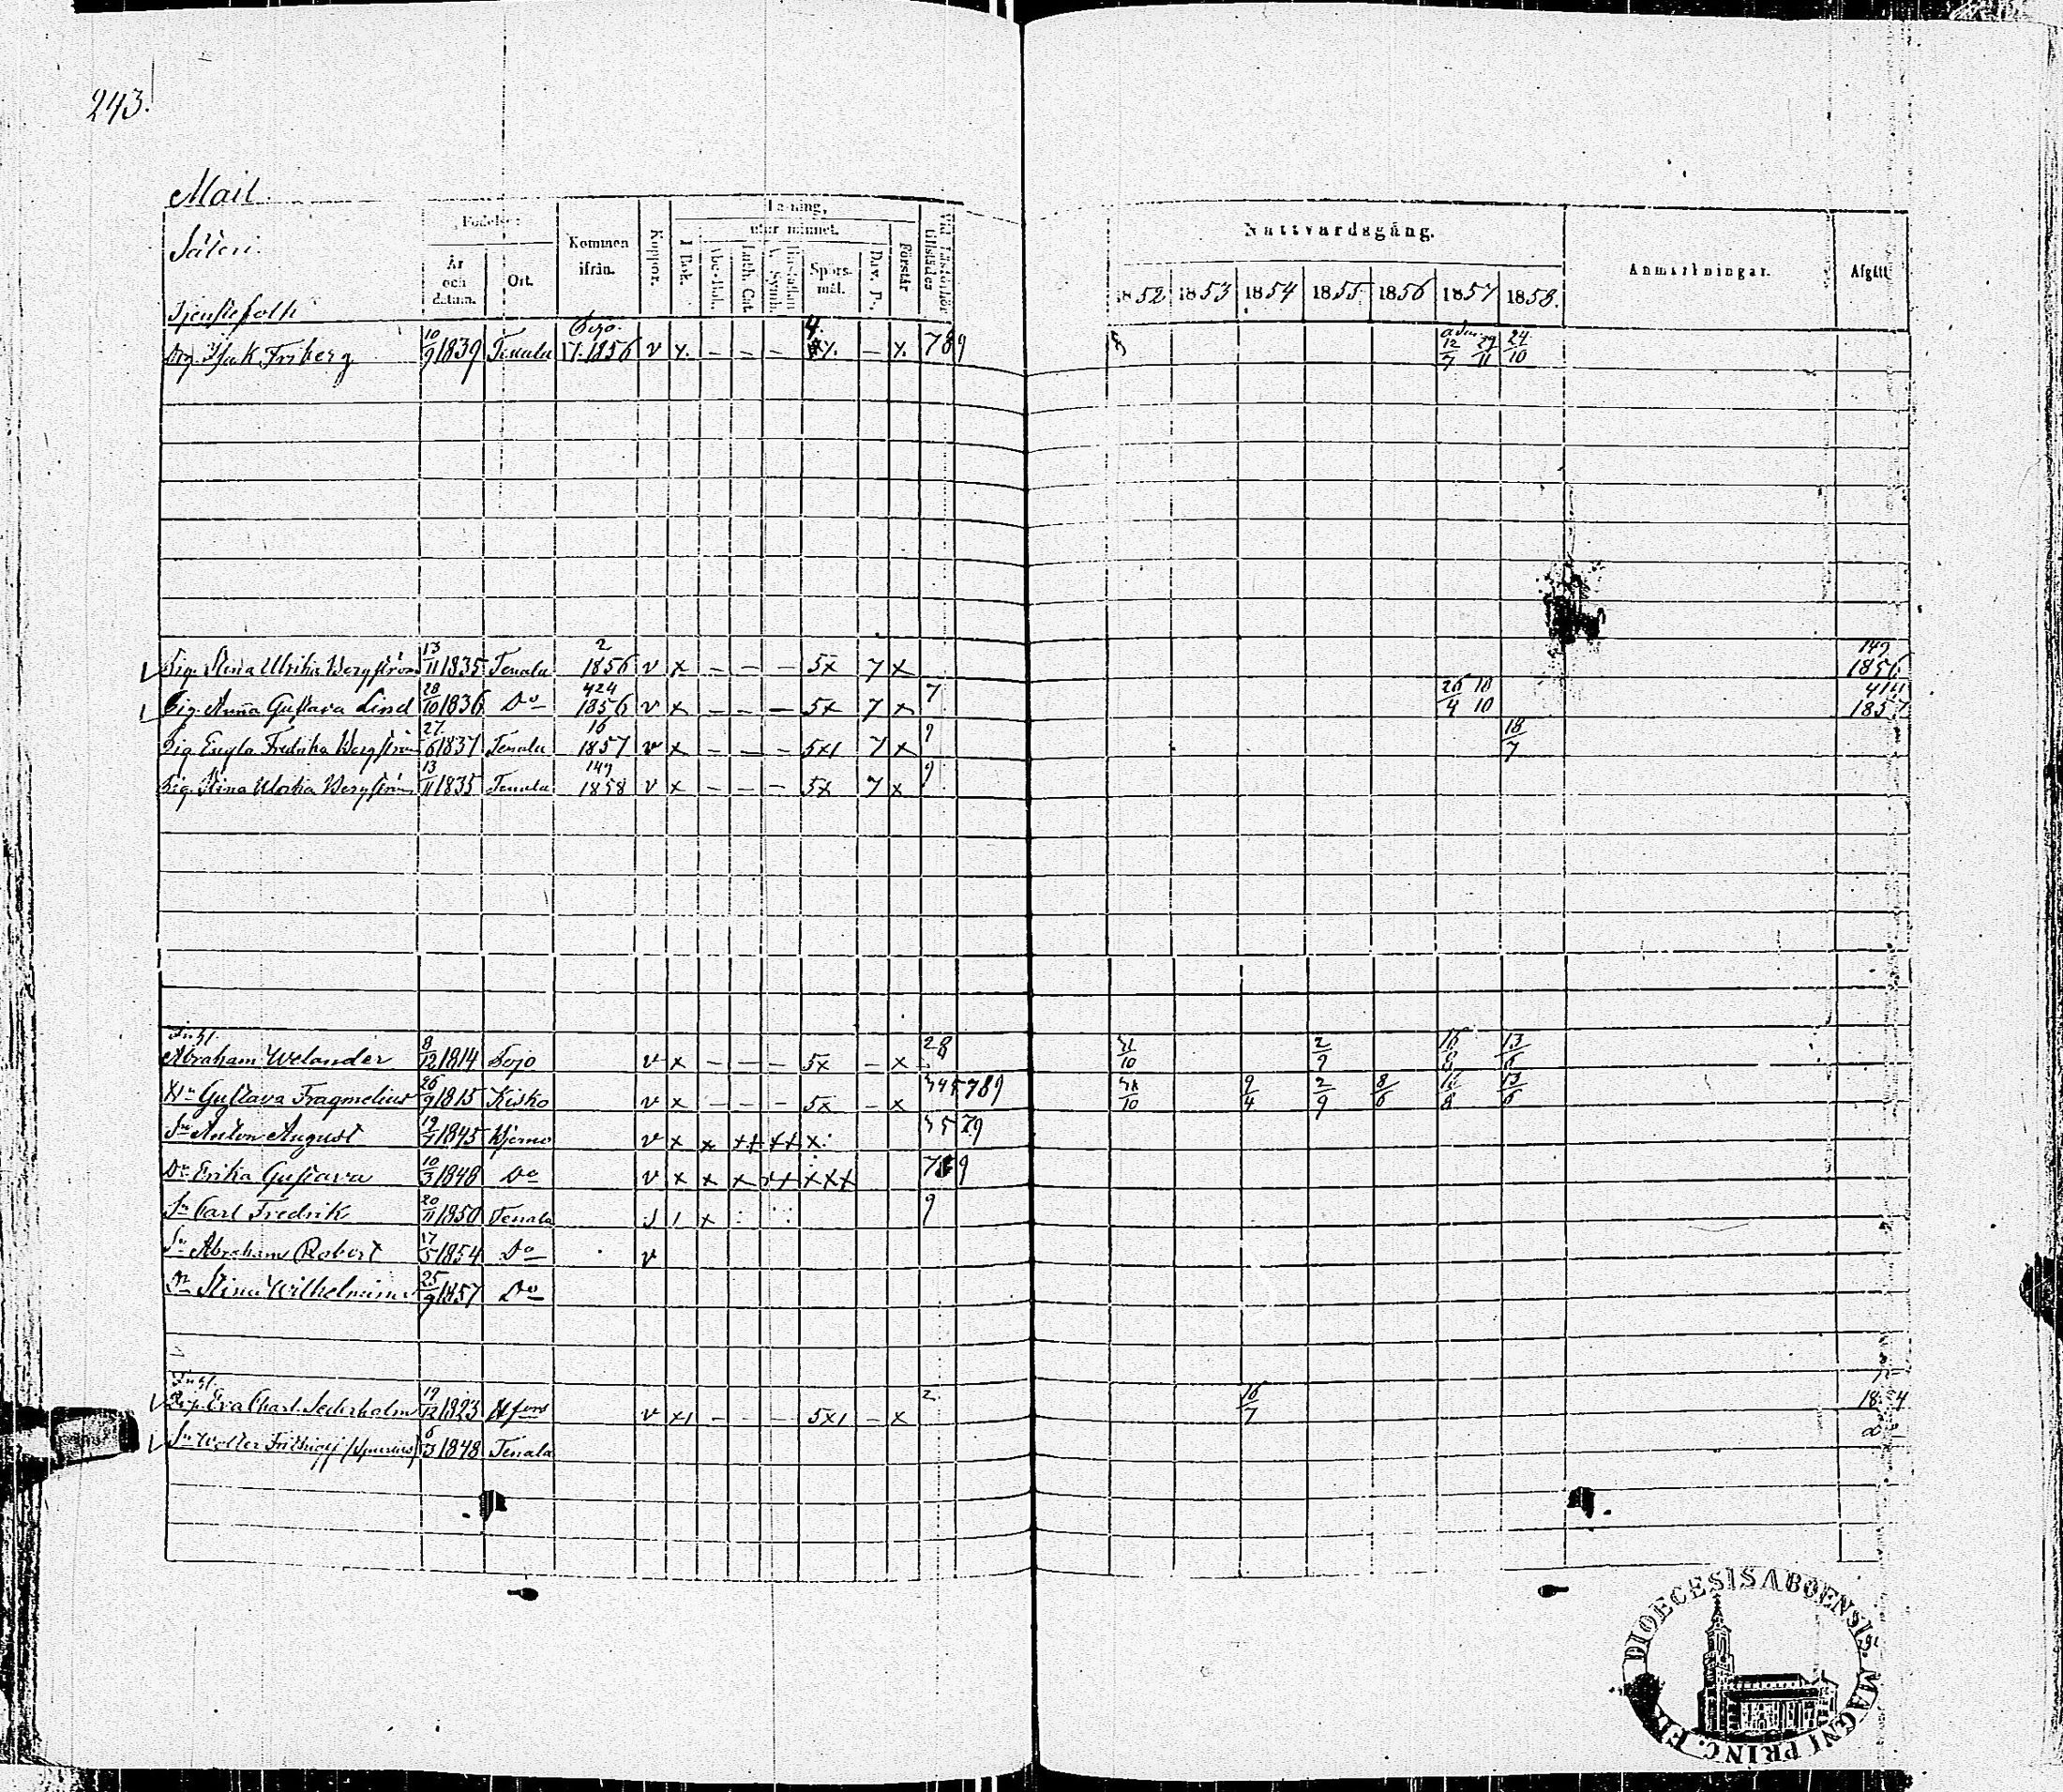 243.
Mail.
Säteri.
Tjenstefolk
Födelse
År och datum.
Ort.
Kommen ifrån.
Koppor.
Läsning,
utur minnet.
I Bok.
Abc-Bok.
Luth. Cat.
Spörsmål.
Dav. Ps.
Förstår
tillstädes
Nattvardsgång.
1852 1853 1854 1855 1856 1857 1858.
Anmärkningar.
Afgått
Drg. Isak Friberg 10/9 1839 Tenala Bojo. 17. 1856 v x. – – – 4 x. – x. 789 12/7 29/11 24/10
Pig. Stina Ulrika Bergström 13/11 1835 Tenala 2 1856 v x – – – 5x 7 x 149 1856
Pig. Anna Gustava Lind 28/10 1836 Do 424 1856 v x – – – 5x 7 x 7 26/4 18/10 1857
Pig. Engla Fredrika Bergström 27/6 1837 Tenala 16 1857 v x – – – 5x1 7 x 9 18/7
Pig. Stina Ulrika Bergström 13/11 1835 Tenala 149 1858 v x – – – 5x 7 x 9
Inh.
Abraham Welander 8/12 1814 Bojo v x – – – 5x – x 28 31/10 2/9 16/8 13/6
Hu Gustava Fragmelius 26/9 1815 Kisko v x – – – 5x – x 345789 31/10 9/4 2/9 8/6 16/8 13/6
Sn Anton August 19/7 1845 Bjerno v x x xx xx x 3579
Dr Erika Gustava 10/3 1848 Do v x x x xx xxx 789
Sn Carl Fredrik 20/11 1850 Tenala x 9
Sn Abraham Robert 17/5 1854 Do v
Dr Stina Wilhelmina 25/9 1857 Do
Inh.
Pig. Eva Charl. Sederholm 19/12 1823 Hfors v x1 – – – 5x1 – x 2 16/7 1854
Sn Wolter Frithiof (spurius) 6/5 1848 Tenala do
DIOECESIS ABOENSIS MAGNI PRINC.